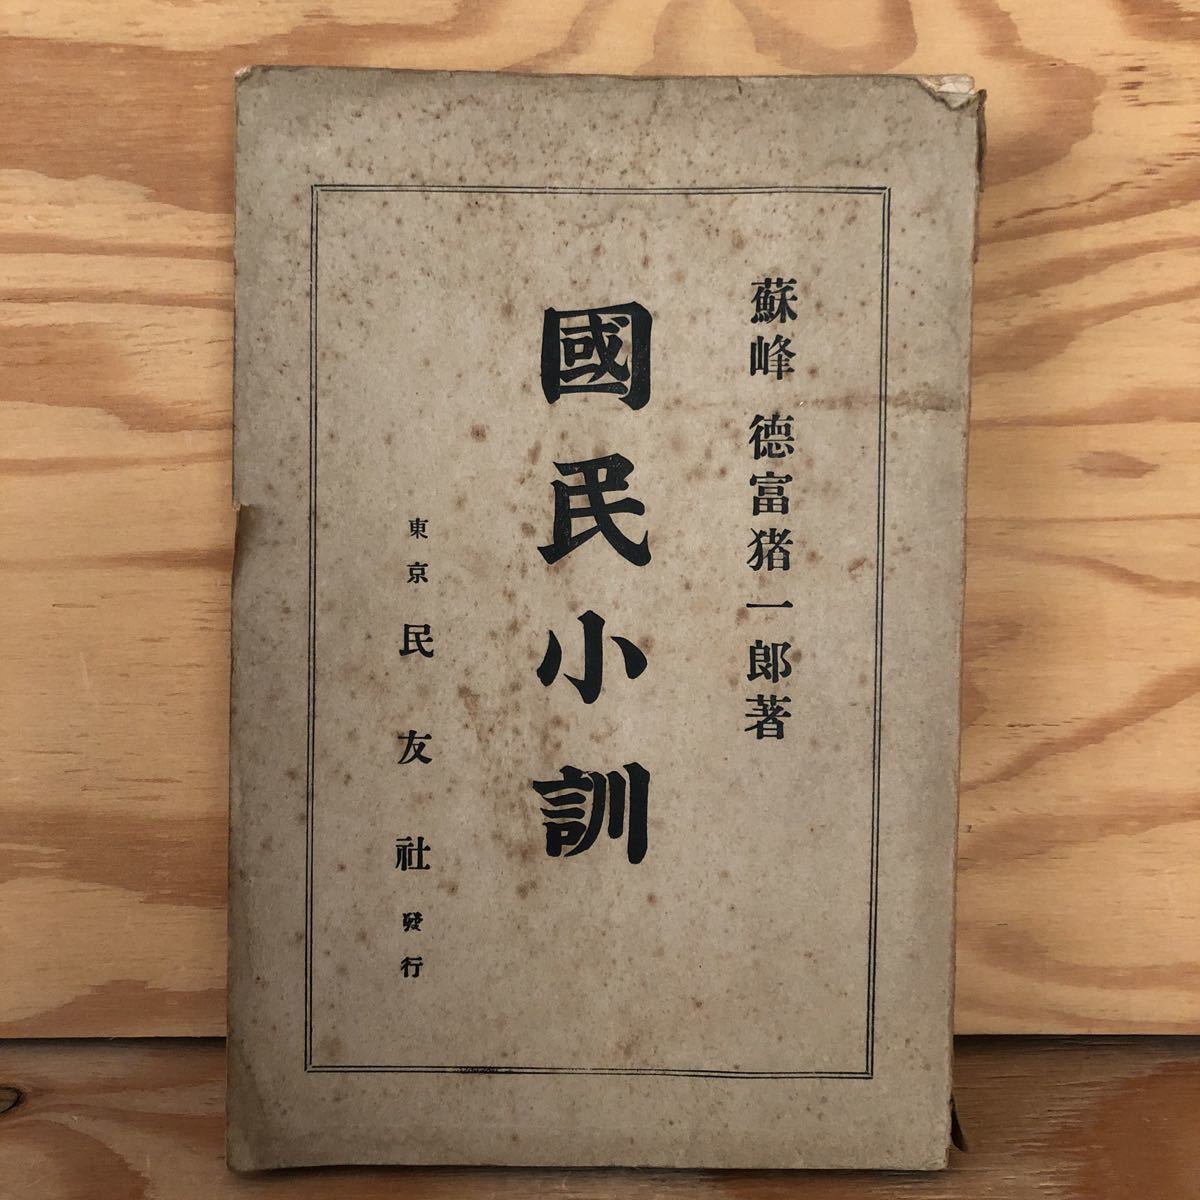 蘇峰 德富猪一郎著
國民小訓
東京 民友社 發行